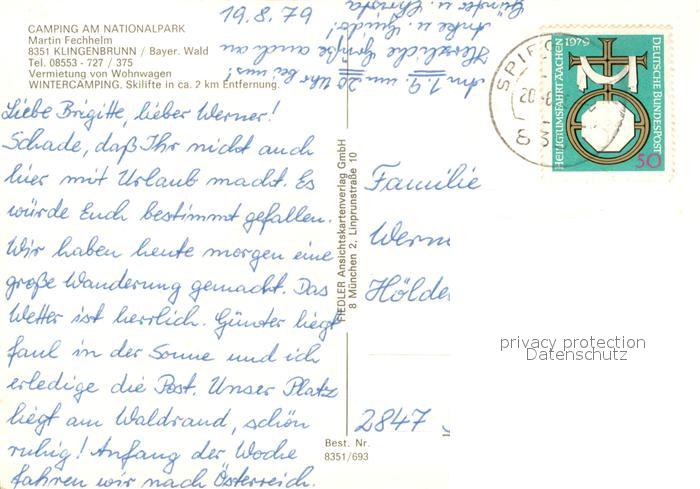 CAMPING AM NATIONALPARK
Martin Fechhelm
8351 KLINGENBRUNN / Bayer. Wald
Tel. 08553 - 727 / 375
Vermietung von Wohnwagen
WINTERCAMPING. Skilifte in ca. 2 km Entfernung.
19.8.79
Liebe Brigitte, lieber Werner!
Schade, daß Ihr nicht auch
hier mit Urlaub macht. Es
würde Euch bestimmt gefallen.
Wir haben heute morgen eine
große Wanderung gemacht. Das
Wetter ist herrlich. Günter liegt
faul in der Sonne und ich
erledige die Post. Unser Platz
liegt am Waldrand, schön
ruhig! Anfang der Woche
fahren wir nach Österreich.
Am 1.9. um 20 Uhr bei uns!
Herzliche Grüße auch an
Anke u. Guido!
Günter u. Christa
FIEDLER Ansichtskartenverlag GmbH
8 München 2, Linprunstraße 10
Best. Nr.
8351/693
Familie
Wern
Hölde
2847
SPIEG
20
83
HEILIGTUMSFAHRT AACHEN 1979
DEUTSCHE BUNDESPOST
50
privacy protection
Datenschutz